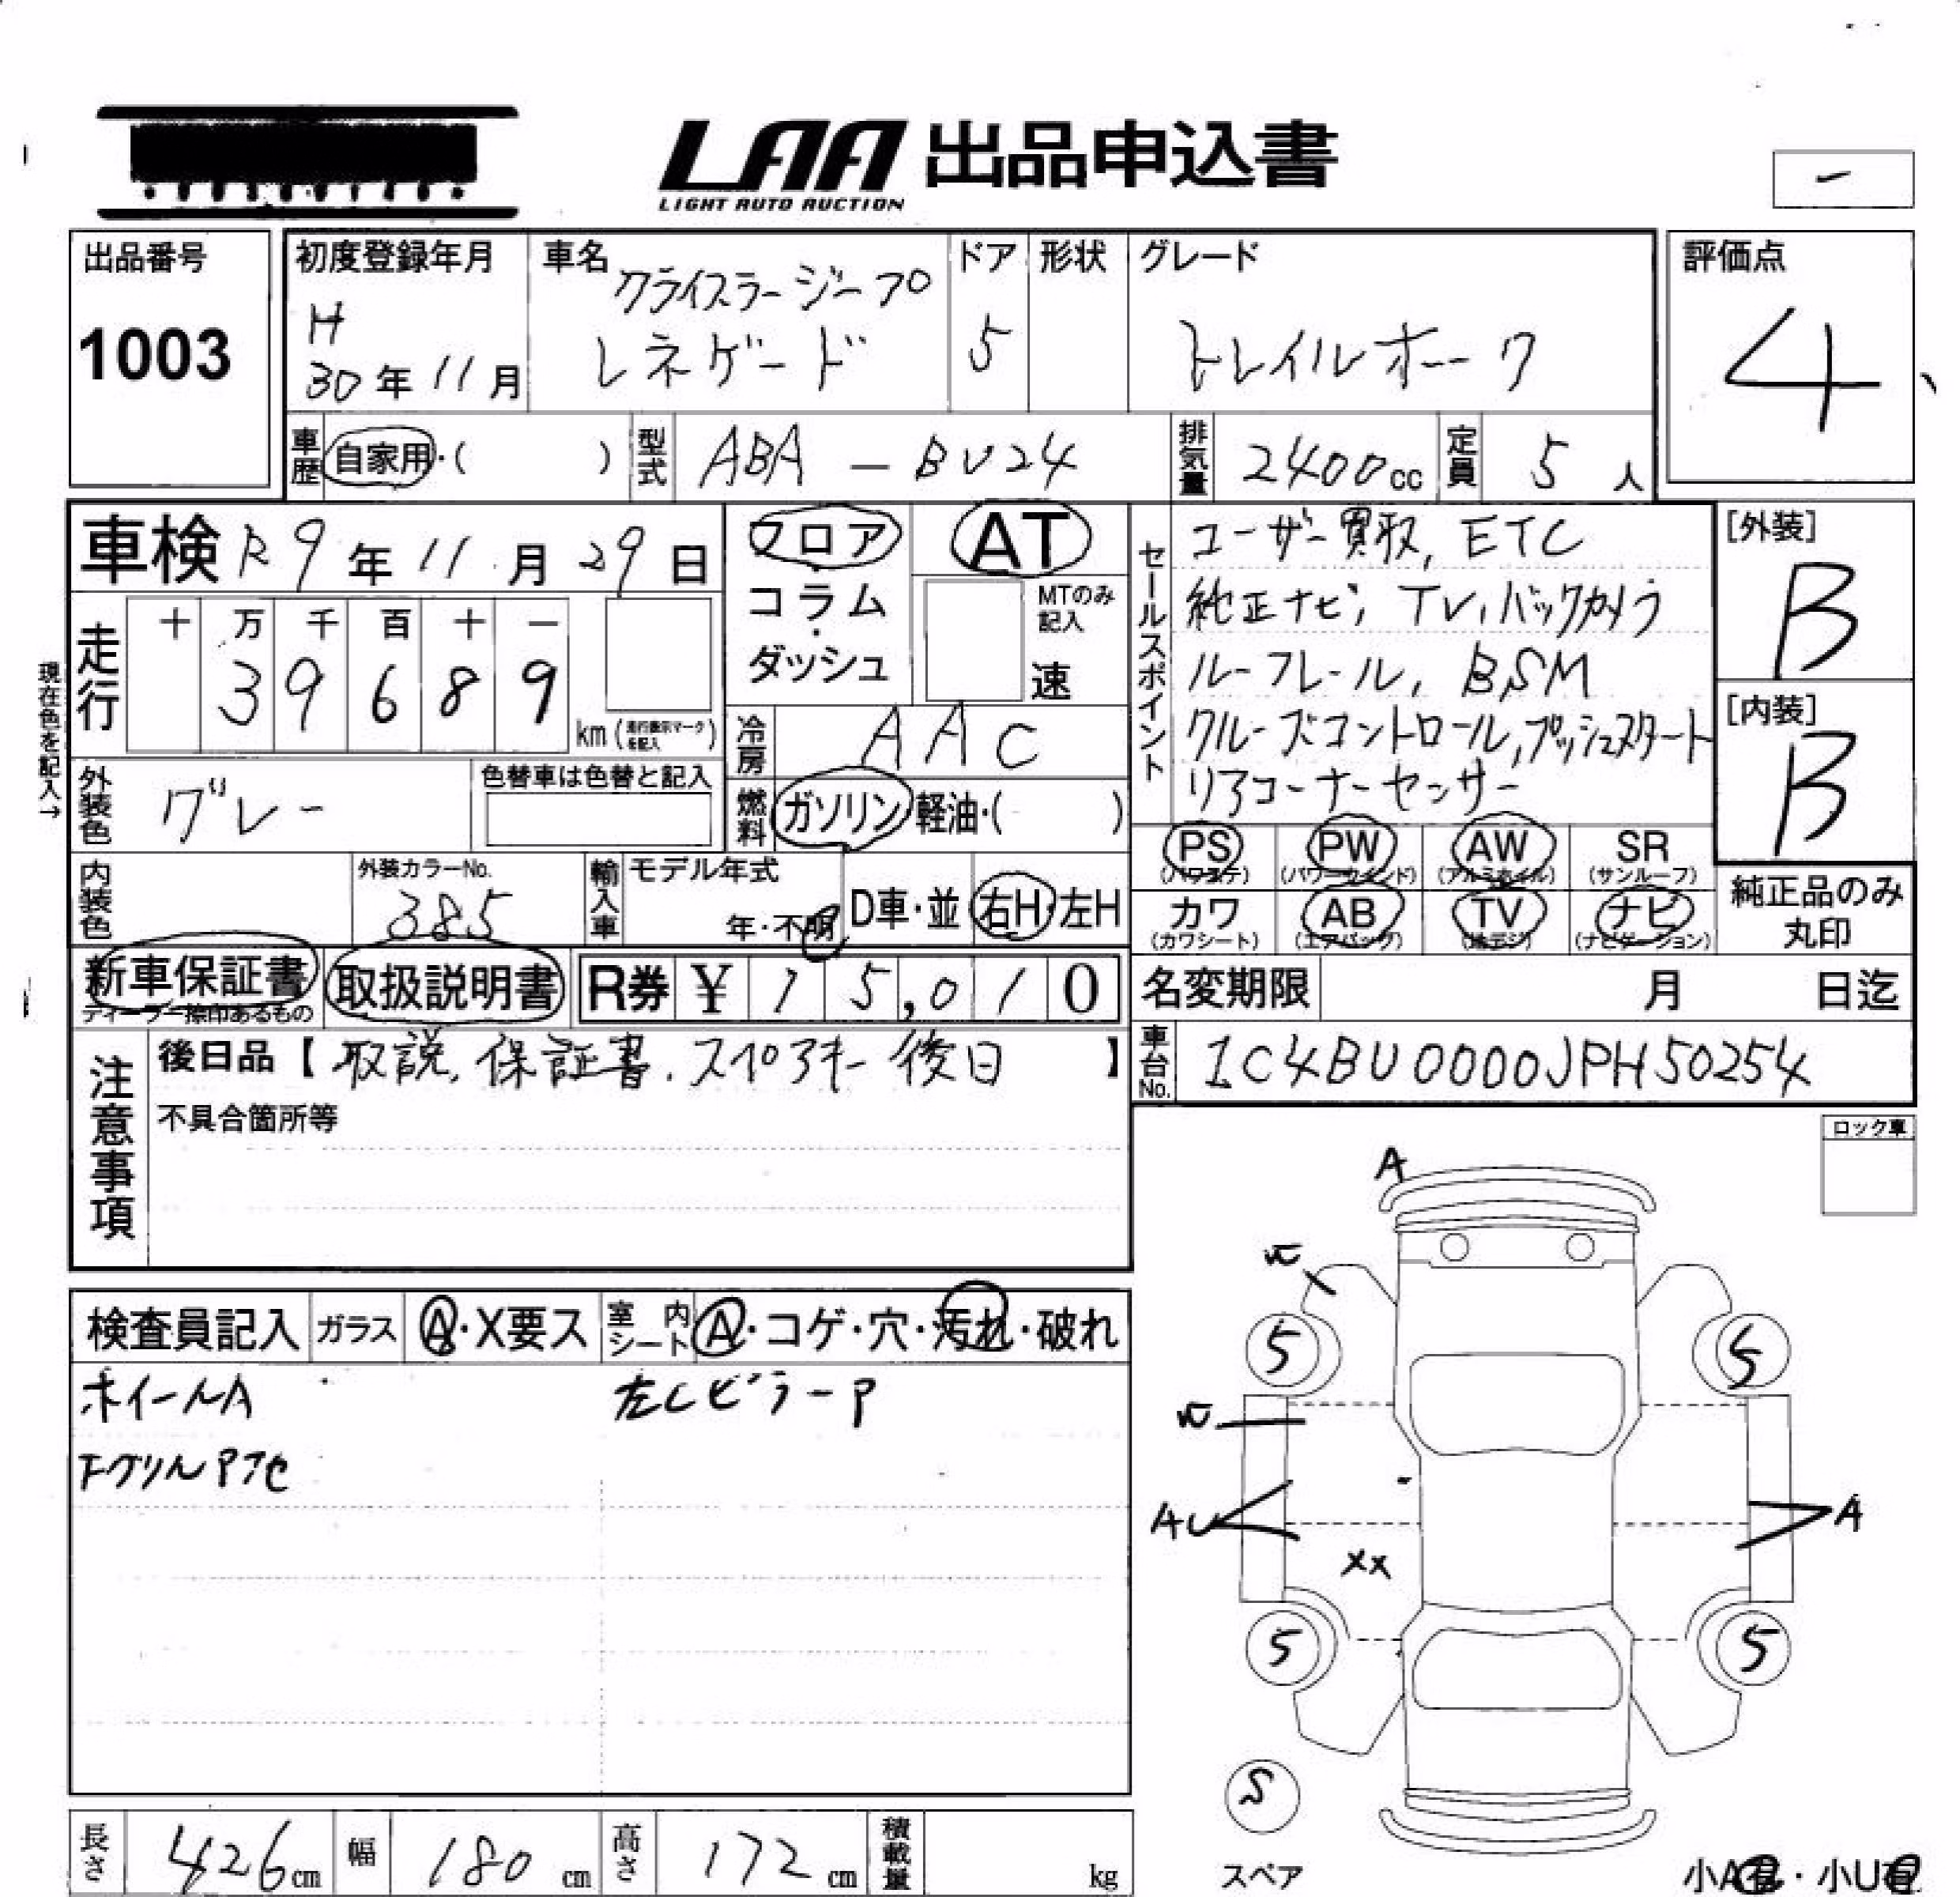 LAA 出品申込書
LIGHT AUTO AUCTION
出品番号
1003
初度登録年月
H
30年11月
車名
クライスラージープ
レネゲード
ドア
5
形状
グレード
トレイルホーク
評価点
4
車歴 自家用・( )
型式 ABA-BU24
排気量 2400cc
定員 5人
車検 R9年11月29日
フロア
コラム
・
ダッシュ
AT
MTのみ
記入
速
セールスポイント
ユーザー買取, ETC
純正ナビ, TV, バックカメラ
ルーフレール, BSM
クルーズコントロール, プッシュスタート
リアコーナーセンサー
[外装]
B
[内装]
B
走行
十 万 千 百 十 一
3 9 6 8 9
km(走行表示マークを記入)
現在色を記入→
外装色 グレー
色替車は色替と記入
冷房 AAC
燃料 ガソリン・軽油・( )
PS (パワステ) PW (パワーウインド) AW (アルミホイル) SR (サンルーフ)
カワ (カワシート) AB (エアバック) TV (地デジ) ナビ (ナビゲーション)
純正品のみ
丸印
内装色
外装カラーNo.
385
輸入車
モデル年式
年・不明
D車・並 右H・左H
新車保証書
ディーラー捺印あるもの
取扱説明書
R券 ¥ 15,010
名変期限 月 日迄
車台No. 1C4BU0000JPH50254
注意事項
後日品【取説, 保証書, スペアキー後日】
不具合箇所等
ロック車
検査員記入 ガラス A・X要ス 室内シート A・コゲ・穴・汚れ・破れ
ホイールA
左CピラーP
FグリルPアセ
A
5 5
AU
A
XX
5 5
S
スペア
小A有・小U有
長さ 426cm
幅 180cm
高さ 172cm
積載量 kg